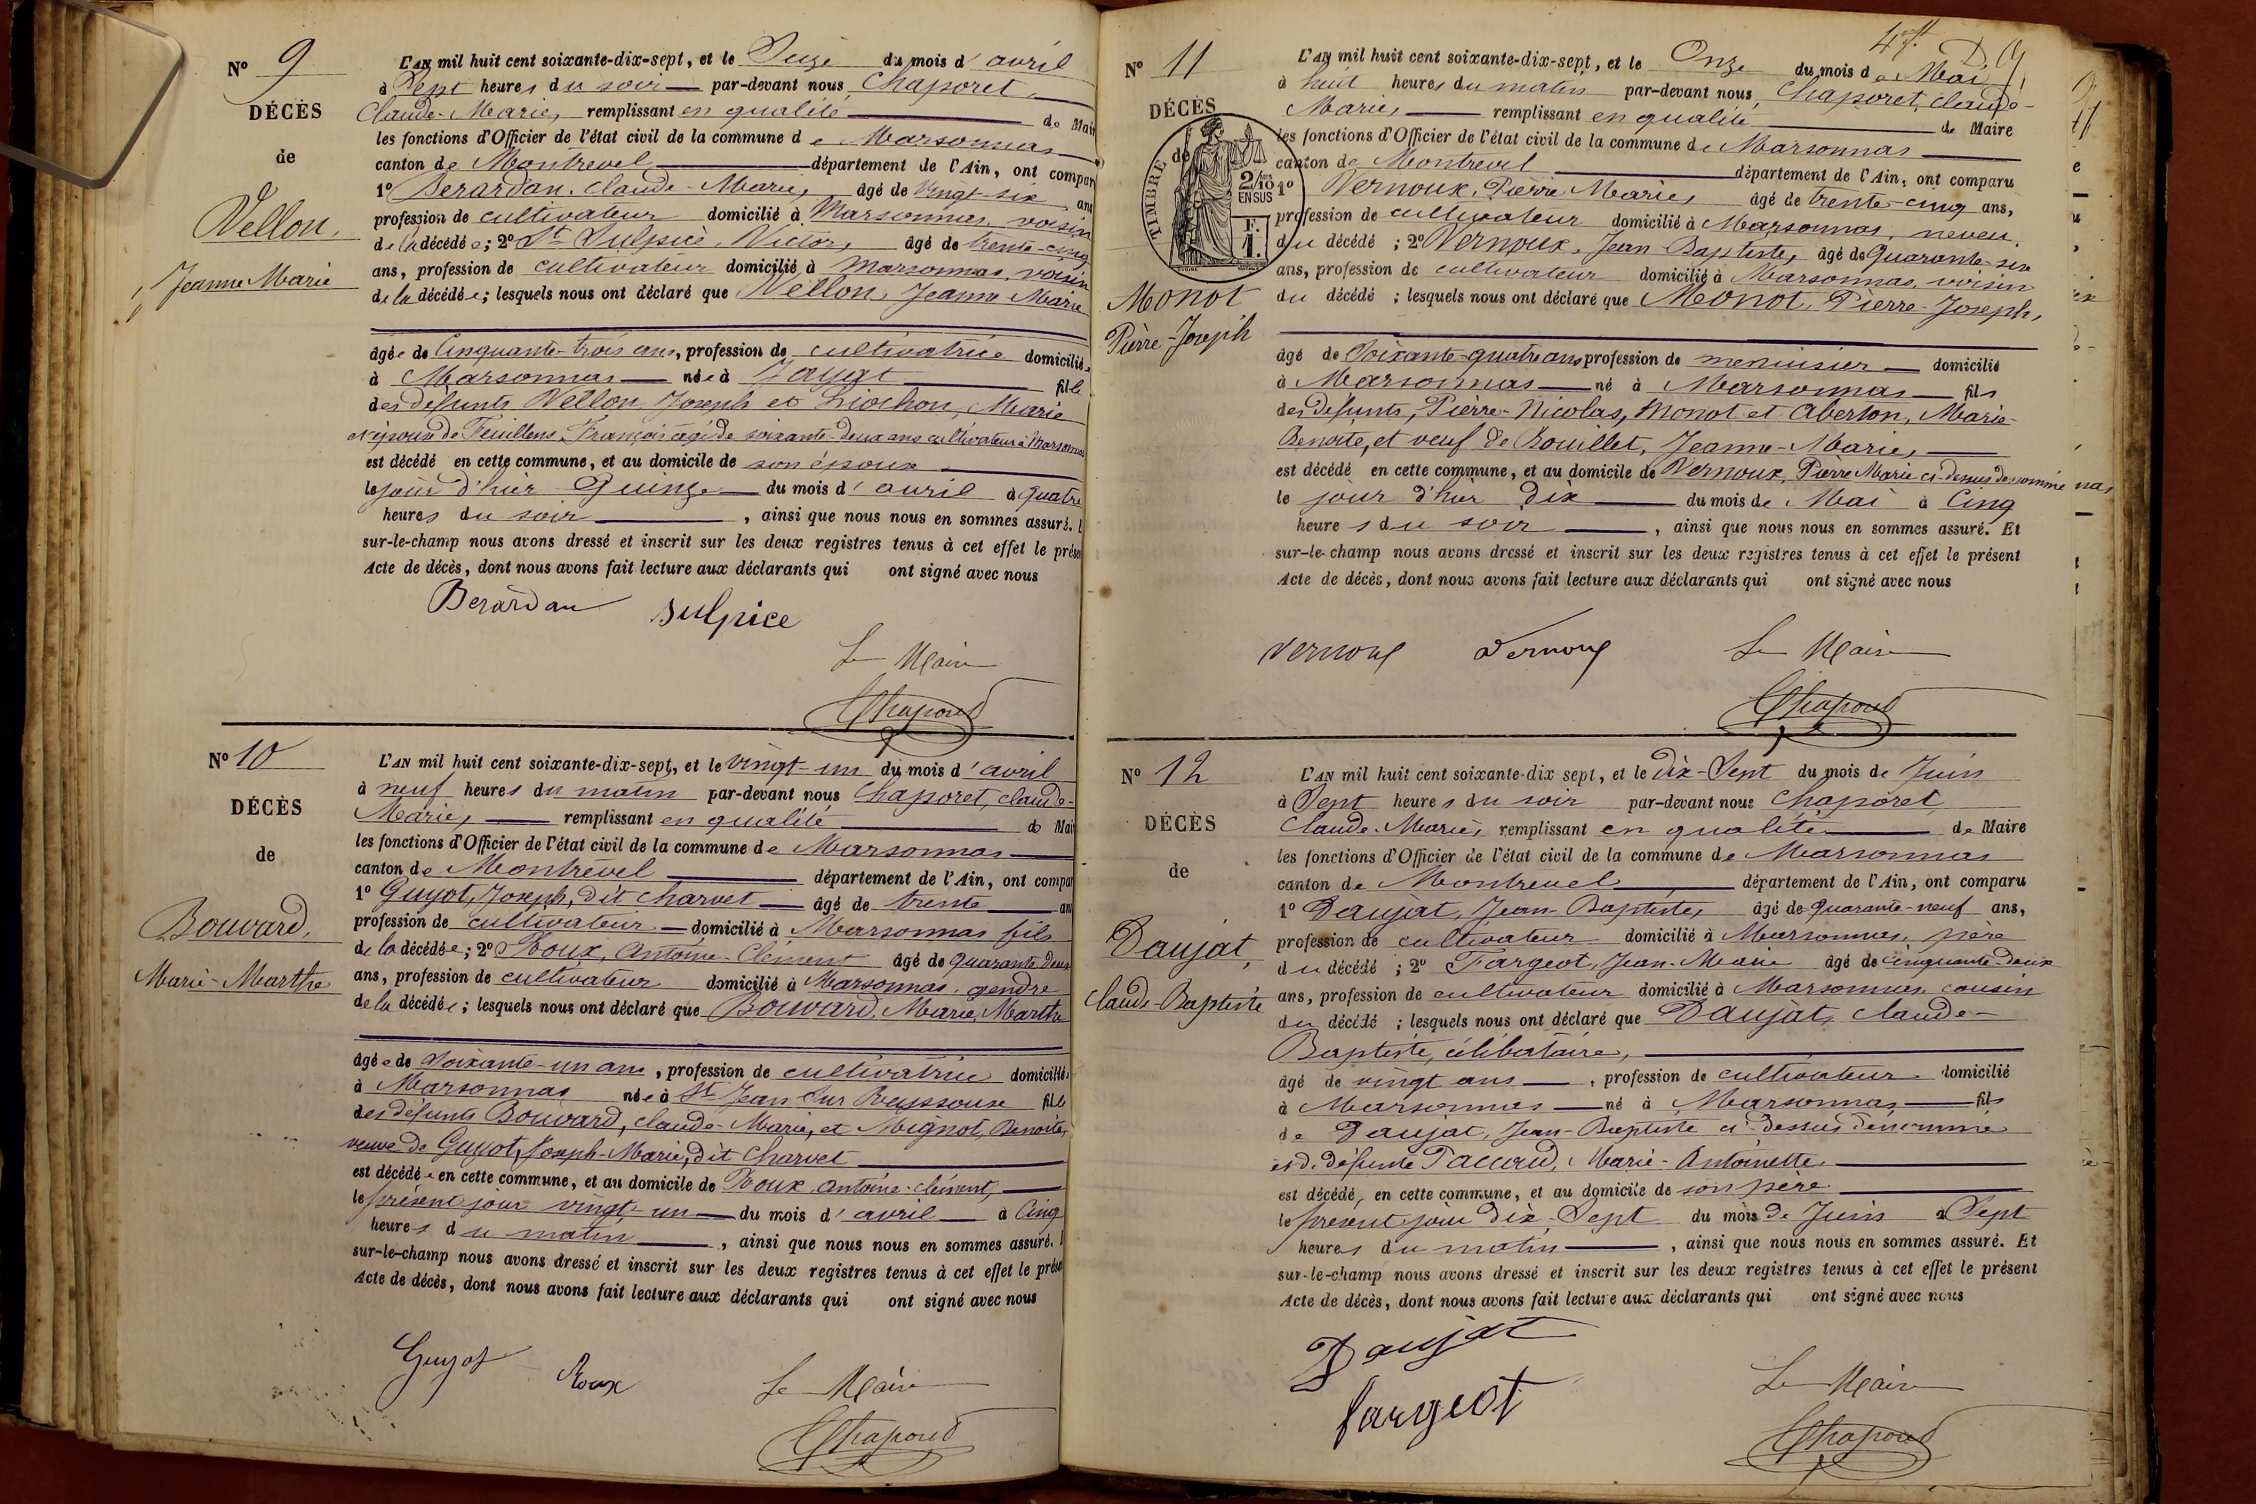 N° 9
DÉCÈS
de
Vellon,
Jeanne Marie
L'AN mil huit cent soixante-dix-sept, et le Seize du mois d'avril
à Sept heures du soir par-devant nous, Chaporet,
Claude-Marie, remplissant en qualité de Mair
les fonctions d'Officier de l'état civil de la commune de Marsonnas
canton de Montrevel département de l'Ain, ont compar
1° Berardan, Claude-Marie, âgé de vingt-six ans
profession de cultivateur domicilié à Marsonnas, voisin
de la décédée; 2° St Sulpice, Victor, âgé de trente-cinq
ans, profession de cultivateur domicilié à Marsonnas, voisin
de la décédée; lesquels nous ont déclaré que Vellon, Jeanne Marie
âgée de Cinquante-trois ans, profession de cultivatrice domiciliée
à Marsonnas née à Jayat fille
des défunts Vellon Joseph et Liochon, Marie
et épouse de Feuillens, François âgé de soixante-deux ans cultivateur à Marsonnas
est décédé en cette commune, et au domicile de son époux
le jour d'hier Quinze du mois d'avril à quatre
heures du soir, ainsi que nous nous en sommes assuré.
sur-le-champ nous avons dressé et inscrit sur les deux registres tenus à cet effet le prése
Acte de décès, dont nous avons fait lecture aux déclarants qui ont signé avec nous
Berardan Sulpice
Le Maire
Chaporet
N° 10
DÉCÈS
de
Bouvard,
Marie-Marthe
L'AN mil huit cent soixante-dix-sept, et le vingt-un du mois d'avril
à neuf heures du matin par-devant nous Chaporet, Claude-
Marie, remplissant en qualité de Mai
les fonctions d'Officier de l'état civil de la commune de Marsonnas
canton de Montrevel département de l'Ain, ont compar
1° Guyot, Joseph, dit Charvet âgé de trente an
profession de cultivateur domicilié à Marsonnas fils
de la décédée; 2° Roux, Antoine-Clément âgé de quarante-deux
ans, profession de cultivateur domicilié à Marsonnas, gendre
de la décédée; lesquels nous ont déclaré que Bouvard, Marie, Marthe
âgée de Soixante-un ans, profession de cultivatrice domiciliée
à Marsonnas née à St Jean Sur Reyssouze fille
des défunts Bouvard, Claude-Marie, et Mignot, Benoite,
veuve de Guyot, Joseph-Marie, dit Charvet
est décédée en cette commune, et au domicile de Roux, Antoine-Clément,
le présent jour vingt-un du mois d'avril à Cinq
heures du matin, ainsi que nous nous en sommes assuré.
sur-le-champ nous avons dressé et inscrit sur les deux registres tenus à cet effet le prése
Acte de décès, dont nous avons fait lecture aux déclarants qui ont signé avec nous
Guyot Roux
Le Maire
Chaporet
N° 11
DÉCÈS
de
TIMBRE
2/10 EN SUS
F. 1.
Monot
Pierre-Joseph
L'AN mil huit cent soixante-dix-sept, et le Onze du mois de Mai
à huit heures du matin par-devant nous, Chaporet, Claude-
Marie, remplissant en qualité de Maire
les fonctions d'Officier de l'état civil de la commune de Marsonnas
canton de Montrevel département de l'Ain, ont comparu
1° Vernoux, Pierre Marie, âgé de trente-cinq ans,
profession de cultivateur domicilié à Marsonnas, neveu,
du décédé; 2° Vernoux, Jean Baptiste, âgé de Quarante-six
ans, profession de cultivateur domicilié à Marsonnas, voisin
du décédé; lesquels nous ont déclaré que Monot, Pierre-Joseph,
âgé de Soixante-quatre ans profession de menuisier domicilié
à Marsonnas né à Marsonnas fils
des défunts, Pierre-Nicolas, Monot et Aberton, Marie-
Benoite, et veuf de Rouillet, Jeanne-Marie,
est décédé en cette commune, et au domicile de Vernoux, Pierre Marie ci-dessus dénommé
le jour d'hier Dix du mois de Mai à Cinq
heures du soir, ainsi que nous nous en sommes assuré. Et
sur-le-champ nous avons dressé et inscrit sur les deux registres tenus à cet effet le présent
Acte de décès, dont nous avons fait lecture aux déclarants qui ont signé avec nous
Vernoux Vernoux Le Maire
Chaporet
N° 12
DÉCÈS
de
Daujat,
Claude-Baptiste
L'AN mil huit cent soixante-dix sept, et le Dix-Sept du mois de Juin
à Sept heures du soir par-devant nous Chaporet,
Claude-Marie, remplissant en qualité de Maire
les fonctions d'Officier de l'état civil de la commune de Marsonnas
canton de Montrevel département de l'Ain, ont comparu
1° Daujat, Jean-Baptiste, âgé de quarante-neuf ans,
profession de cultivateur domicilié à Marsonnas, père
du décédé; 2° Fargeot, Jean-Marie âgé de cinquante-deux
ans, profession de cultivateur domicilié à Marsonnas cousin
du décédé; lesquels nous ont déclaré que Daujat, Claude-
Baptiste, célibataire,
âgé de vingt ans, profession de cultivateur domicilié
à Marsonnas né à Marsonnas fils
de Daujat, Jean-Baptiste ci-dessus dénommé
et de défunte Paccoud, Marie-Antoinette,
est décédé, en cette commune, et au domicile de son père
le présent jour dix-Sept du mois de Juin à Sept
heures du matin, ainsi que nous nous en sommes assuré. Et
sur-le-champ nous avons dressé et inscrit sur les deux registres tenus à cet effet le présent
Acte de décès, dont nous avons fait lecture aux déclarants qui ont signé avec nous
Daujat
fargeot
Le Maire
Chaporet